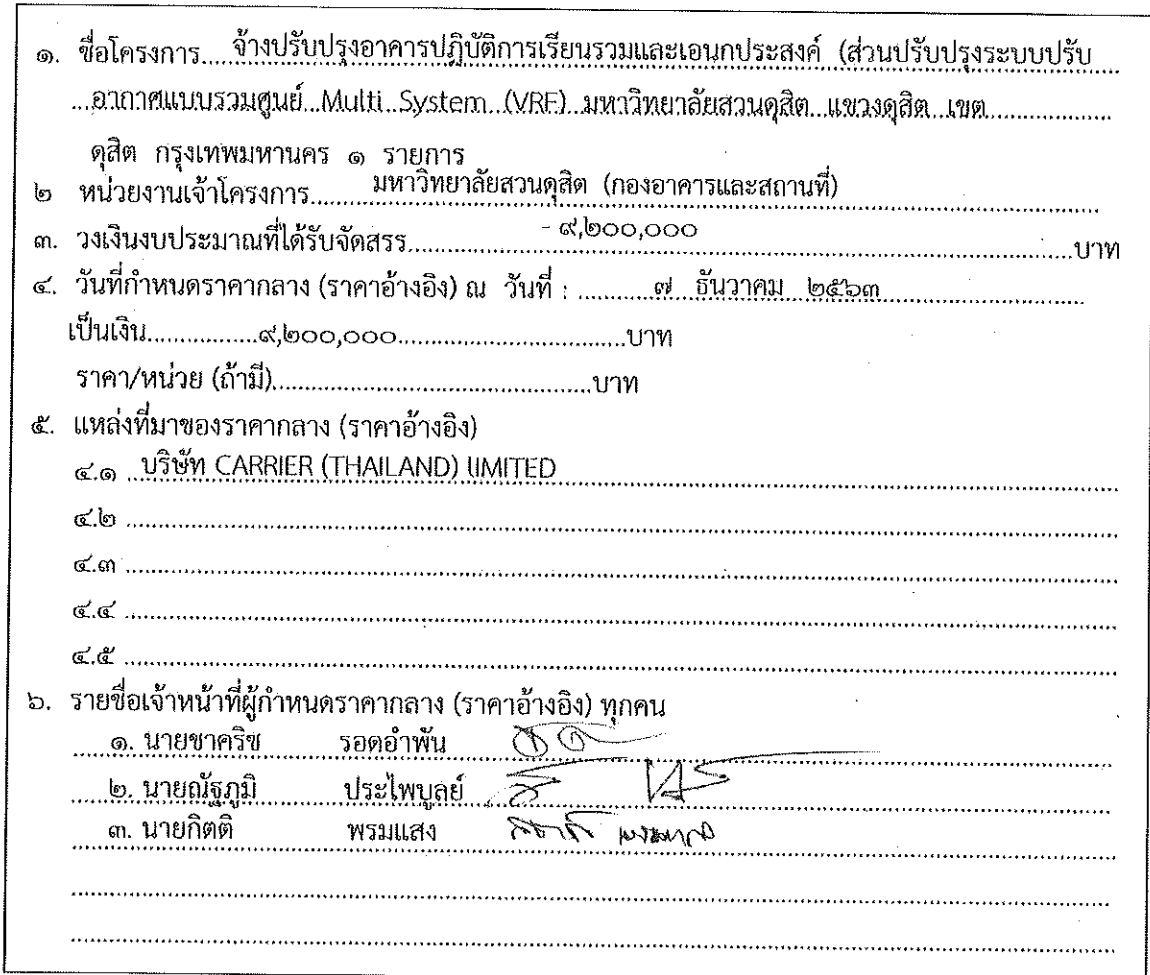 ๑. ชื่อโครงการ.....จ้างปรับปรุงอาคารปฏิบัติการเรียนรวมและเอนกประสงค์ (ส่วนปรับปรุงระบบปรับ
...อากาศแบบรวมศูนย์...Multi...System...(VRF)...มหาวิทยาลัยสวนดุสิต...แขวงดุสิต...เขต...
ดุสิต กรุงเทพมหานคร ๑ รายการ
๒ หน่วยงานเจ้าโครงการ...มหาวิทยาลัยสวนดุสิต (กองอาคารและสถานที่)
๓. วงเงินงบประมาณที่ได้รับจัดสรร...- ๙,๒๐๐,๐๐๐...บาท
๔. วันที่กำหนดราคากลาง (ราคาอ้างอิง) ณ วันที่ : ...๗ ธันวาคม ๒๕๖๓...
เป็นเงิน...๙,๒๐๐,๐๐๐...บาท
ราคา/หน่วย (ถ้ามี)...บาท
๕. แหล่งที่มาของราคากลาง (ราคาอ้างอิง)
๕.๑ ..บริษัท CARRIER (THAILAND) lIMITED...
๕.๒ ...
๕.๓ ...
๕.๔ ...
๕.๕ ...
๖. รายชื่อเจ้าหน้าที่ผู้กำหนดราคากลาง (ราคาอ้างอิง) ทุกคน
๑. นายชาคริช รอดอำพัน
๒. นายณัฐภูมิ ประไพบูลย์
๓. นายกิตติ พรมแสง